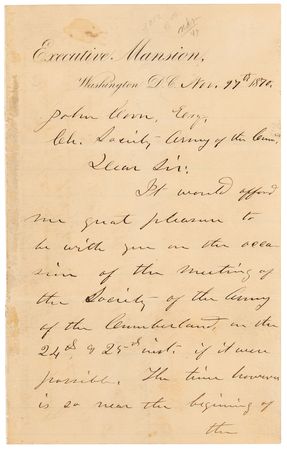 Executive Mansion,
Washington D.C. Nov. 17th 1870.
John Esq.
Ch. Society Army of the Cum.
Dear Sir:
It would afford
me great pleasure to
be with you on the occa-
sion of the meeting of
the Society of the Army
of the Cumberland, on the
24th & 25th inst. if it were
possible. The time however
is so near the begining of
the